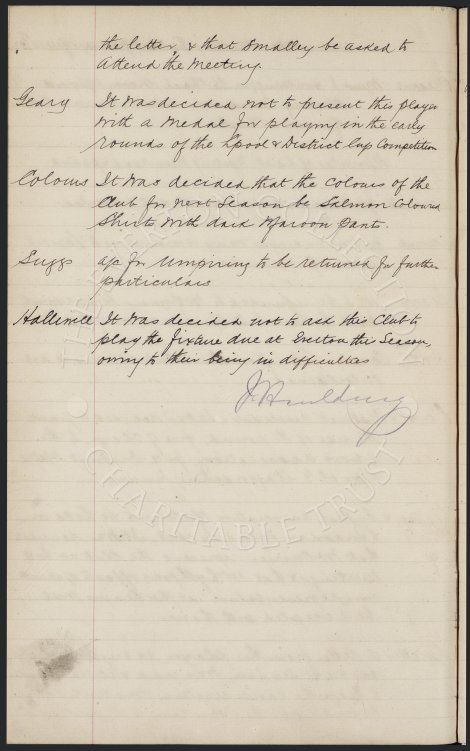 the letter, & that Smalley be asked to
attend the meeting.
Geary It was decided not to present this player
with a medal for playing in the early
rounds of the Lpool & District Cup Competition
Colours It was decided that the colours of the
Club for next season be Salmon Coloured
Shirts with dark Maroon Pants.
Suggs a/c for Umpiring to be returned for further
particulars
Halliwell It was decided not to ask this Club to
play the fixture due at Everton this Season,
owing to their being in difficulties
CHARITABLE TRUST